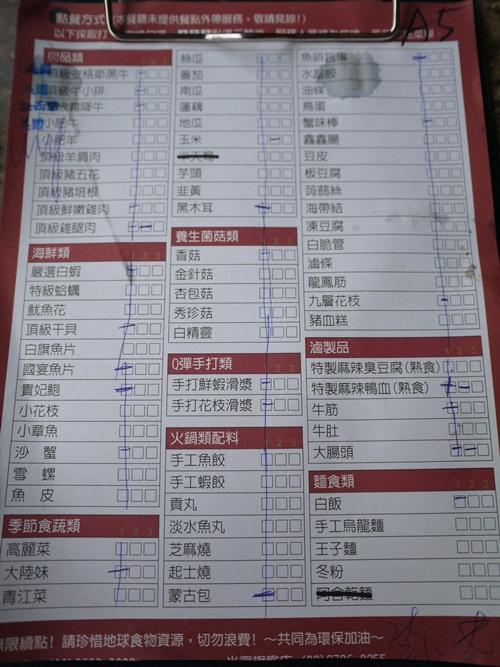 點餐方式(本餐廳未提供餐點外帶服務，敬請見諒!)
以下採取打
A5
肉品類
頂級安格斯黑牛
頂級牛小排
霜降牛
小肥牛
小肥羊
頂級羊肩肉
頂級豬五花
頂級豬培根
頂級鮮嫩雞肉
頂級雞腿肉
海鮮類
1 2 3
嚴選白蝦
特級蛤蠣
魷魚花
頂級干貝
白旗魚片
國宴魚片
貴妃鮑
小花枝
小章魚
沙 蟹
雪 螺
魚 皮
季節食蔬類
1 2 3
高麗菜
大陸妹
青江菜
絲瓜
番茄
南瓜
蓮藕
地瓜
玉米
芋頭
韭黃
黑木耳
養生菌菇類
1 2 3
香菇
金針菇
杏包菇
秀珍菇
白精靈
Q彈手打類
1 2 3
手打鮮蝦滑漿
手打花枝滑漿
火鍋類配料
1 2 3
手工魚餃
手工蝦餃
貢丸
淡水魚丸
芝麻燒
起士燒
蒙古包
魚卵
水晶餃
油條
鳥蛋
蟹味棒
鑫鑫腸
豆皮
板豆腐
蒟蒻絲
海帶結
凍豆腐
白脆管
滷條
龍鳳筋
九層花枝
豬血糕
滷製品
1 2 3
特製麻辣臭豆腐(熟食)
特製麻辣鴨血(熟食)
牛筋
牛肚
大腸頭
麵食類
1 2 3
白飯
手工烏龍麵
王子麵
冬粉
阿舍乾麵
無限續點! 請珍惜地球食物資源，切勿浪費! ～共同為環保加油～